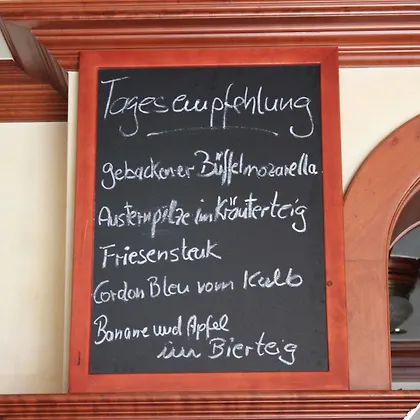 Tagesempfehlung
gebackener Büffelmozarella
Austernpilze im Kräuterteig
Friesensteak
Cordon Bleu vom Kalb
Banane und Apfel
im Bierteig